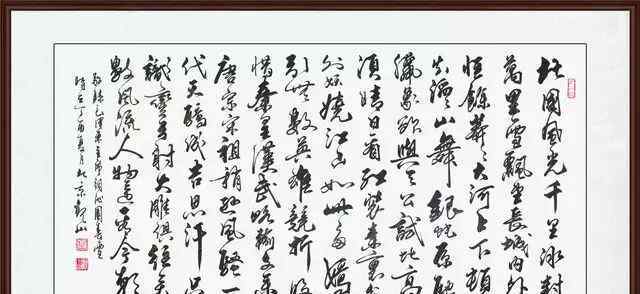 北國風光千里冰封
萬里雪飄望長城内外
惟餘莽々大河上下頓
失滔々山舞銀蛇原馳
臘象欲與天公試比高
須晴日看紅裝素裹
外妖嬈江山如此多嬌
引無數英雄競折腰
惜秦皇漢武略輸文采
唐宗宋祖稍遜風騷一
代天驕成吉思汗只
識彎弓射大雕俱往矣
數風流人物還看今朝
敬録毛澤東主席詞沁園春雪
時在丁酉夏月北京